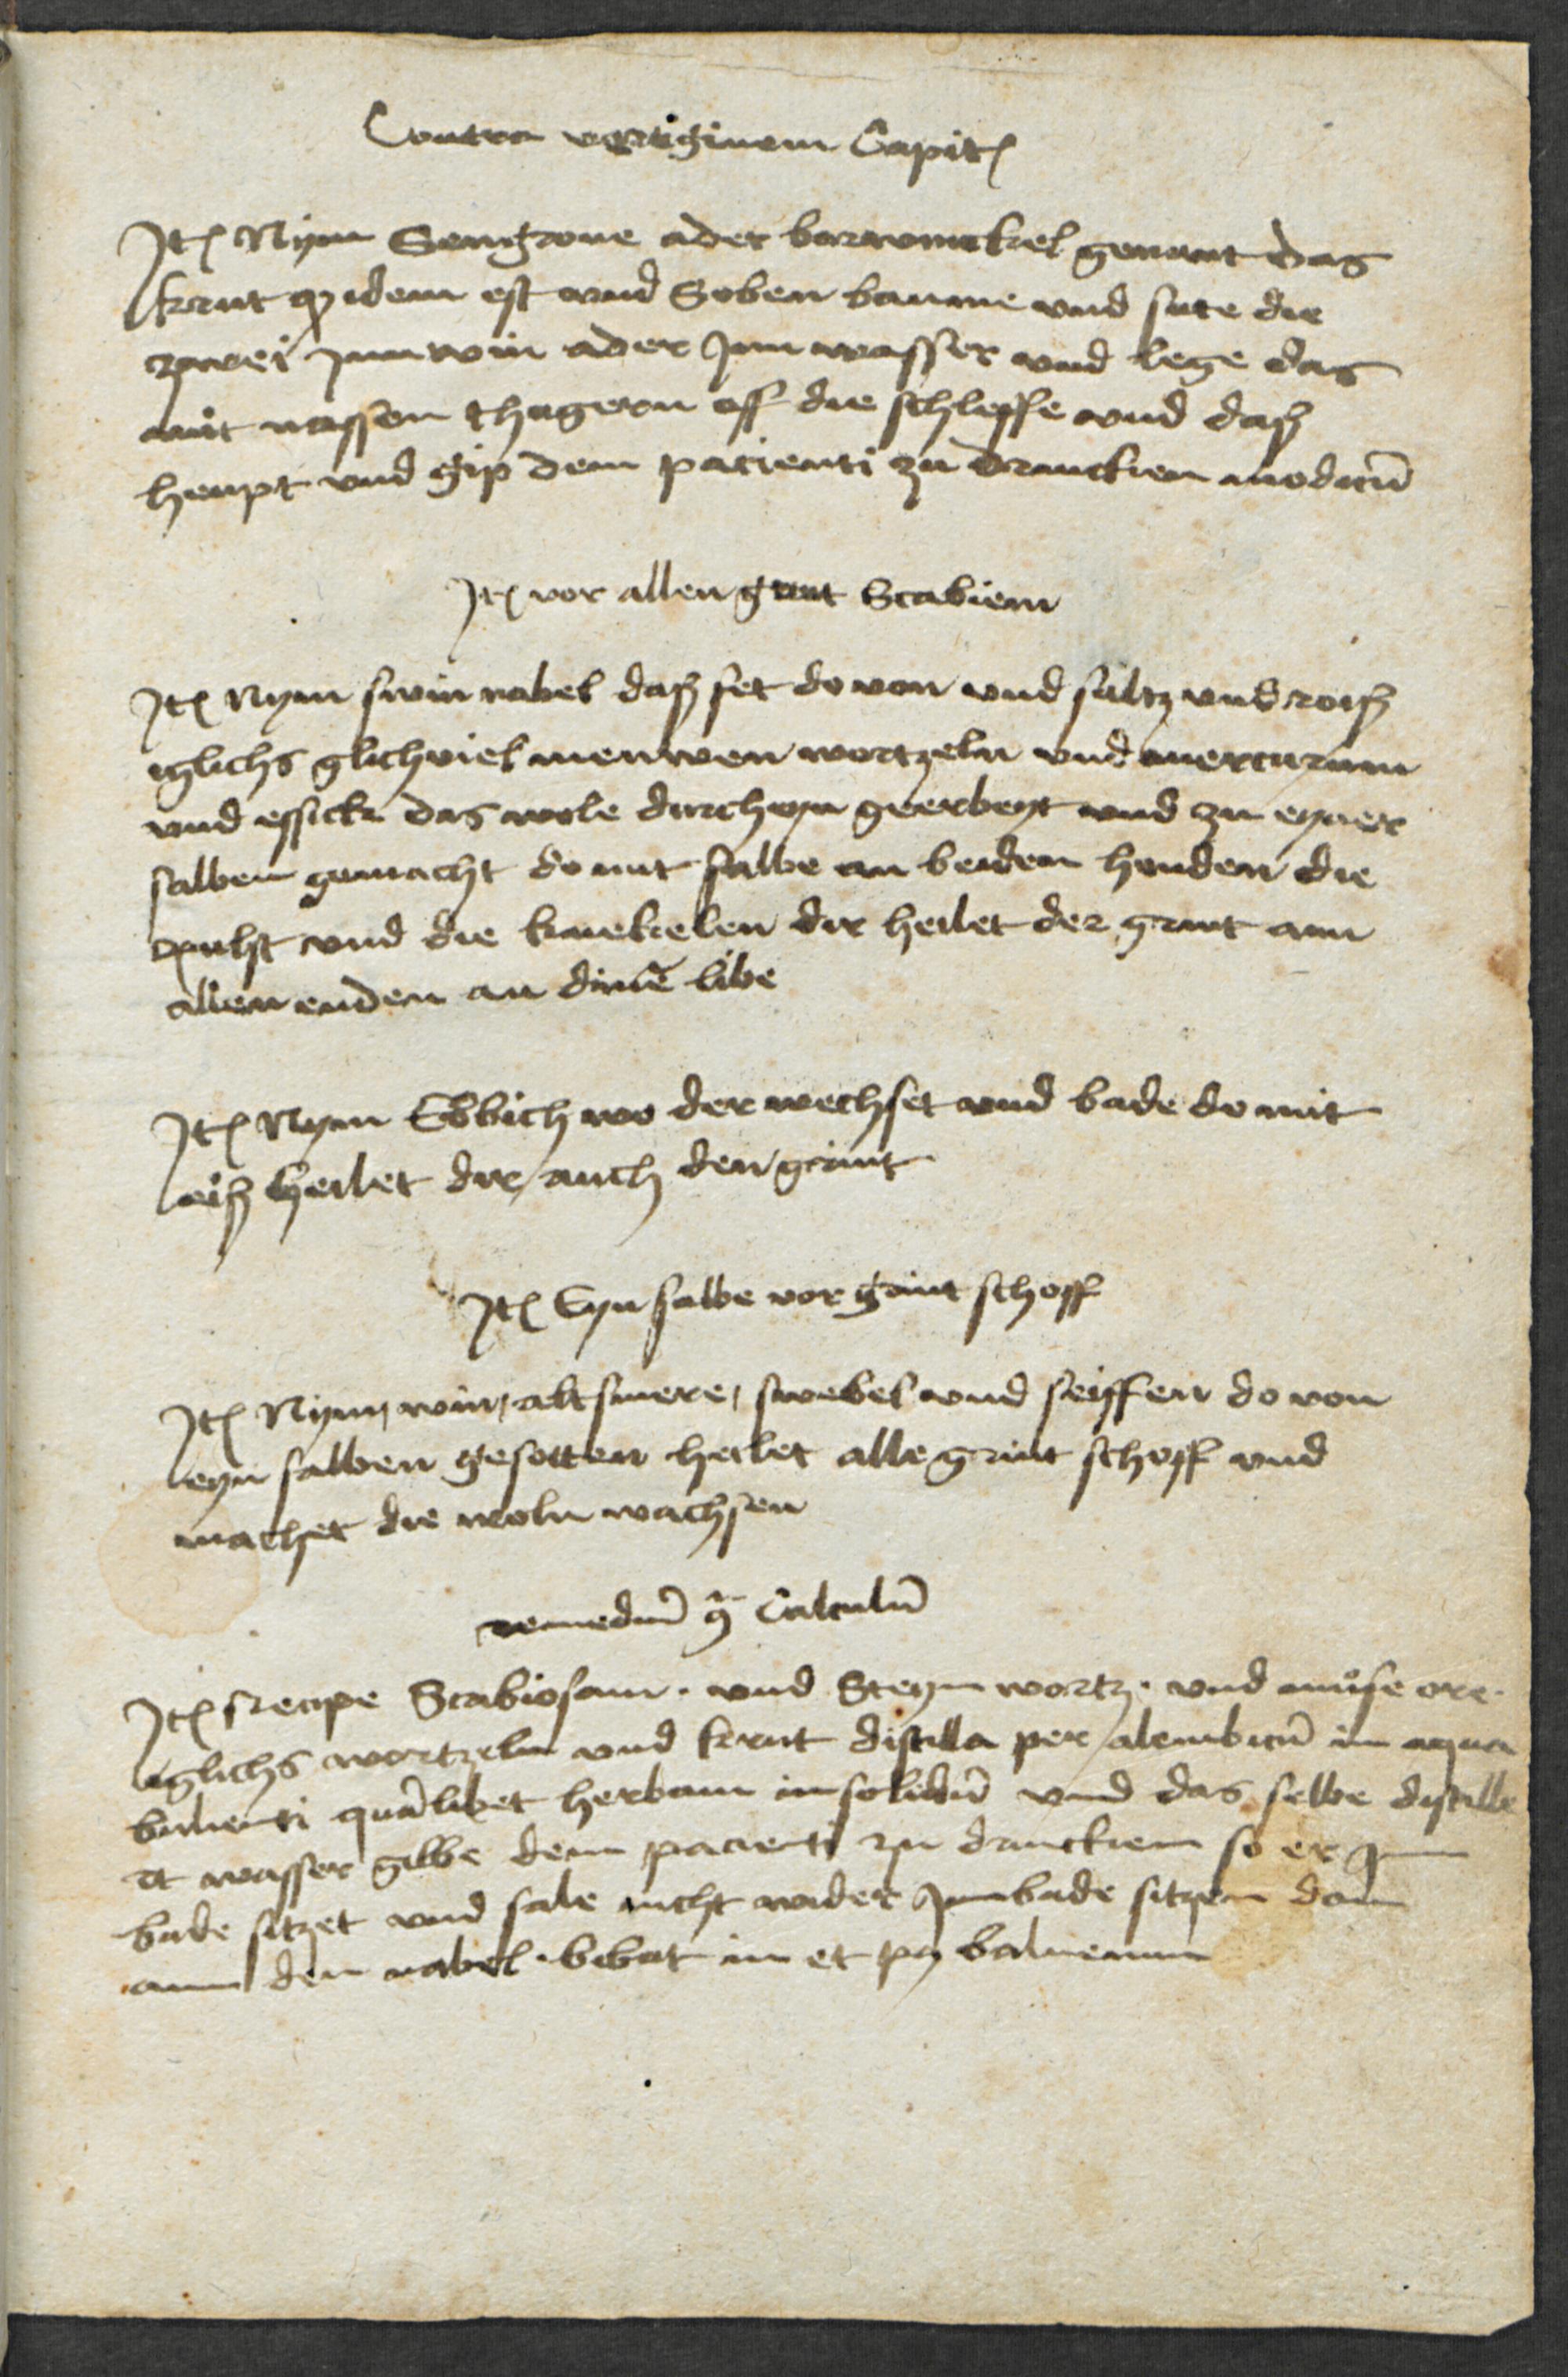 Contra vertiginem Capitꝭ
Itꝭ Nym Sengrone ader barwinckel genant das
krut qꝫ idem est vnd Seben baume vnd sute die
zwei Jnn win ader Jnn wasser vnd lege das
mit nassen thugern off die schleffe vnd daß
heupt vnd gip dem pacienti zu drincken modicū
Itꝭ vor allen grint Scabiem
Itꝭ Nym swin nabel daß fet do von vnd saltz vnd roiß
iglichs glich viel menwen wortzeln vnd mercurium
vnd essick das wole durch eyn geerbeyt vnd zu eyner
salben gemacht do mit salbe an beiden henden die
pulst vnd die knockelen dir heilet der grint ann
allen enden an dinē libe
Itꝭ Nym Ebbich wo der wechset vnd bade do mit
eiß heilet dir auch den grint
Itꝭ Eyn salbe vor grint schoff
Itꝭ Nym, win, alt smere, swebel vnd seiffen do von
eyn salben gesotten heilet alle grint schoff vnd
machet die woln wachsen
remediū ꝯ Calculū
Itꝭ Recipe Scabiosam. vnd Steyn wortz. vnd muse ore.
iglichs wortzeln vnd krut distilla per alembicū in aqua
bulienti quālibet herbam in solidū vnd das selbe distille
rt wasser gibbe dem pacienti zu drincken so er Jm
bade sitzet vnd sale nicht wider Jnn bade sitzen dan
ann den nabel. bibat in et pꝰ balneum